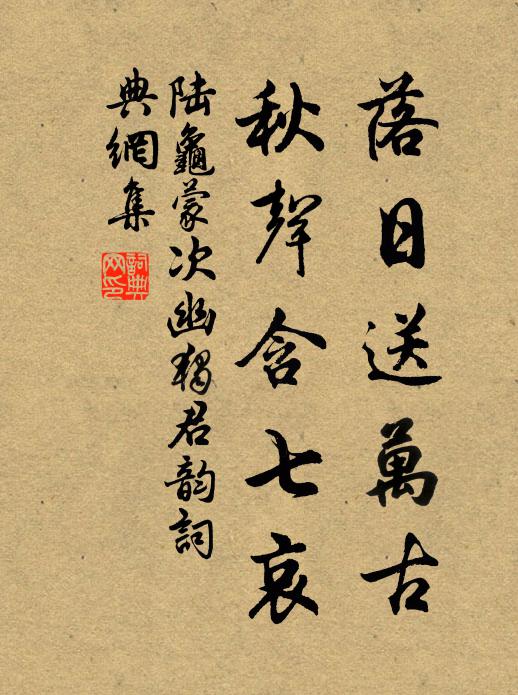 落日送萬古
秋聲含七哀
陆龜蒙次幽獨君韵詞
典網集
詞典
网印